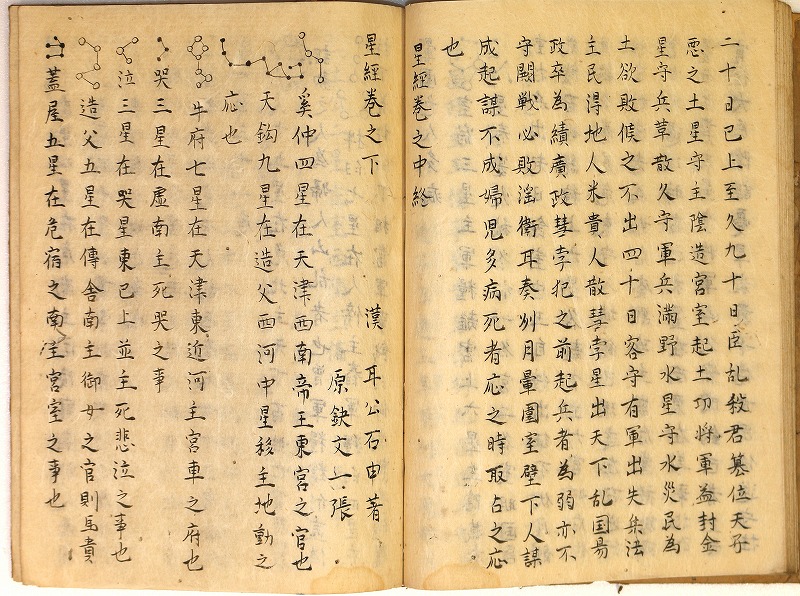 二十日已上至久九十日臣乱殺君簒位天子
悪之土星守主陰造宮室起土功将軍益封金
星守兵草散久守軍兵満野水星守水災民為
土欲敗候之不出四十日客守有軍出失朱法
主民得地人米貴人散彗孛星出天下乱国易
政卒為績廣政彗孛犯之前起兵者為弱亦不
守闘戦必敗淫衛耳奏刎月暈圍室壁下人謀
成起謀不成婦児多病死者應之時取占之應
也
星經巻之中終
星經巻之下
漢 耳公石申著
原缺文一張
奚仲四星在天津西南帝王東宮之官也
天鈎九星在造父西河中星移主地動之
應也
牛府七星在天津東近河主宮車之府也
哭三星在虚南主死哭之事
泣三星在哭星東已上並主死悲泣之事也
造父五星在傳舎南主御女之官則馬貴
蓋屋五星在危宿之南主宮室之事也